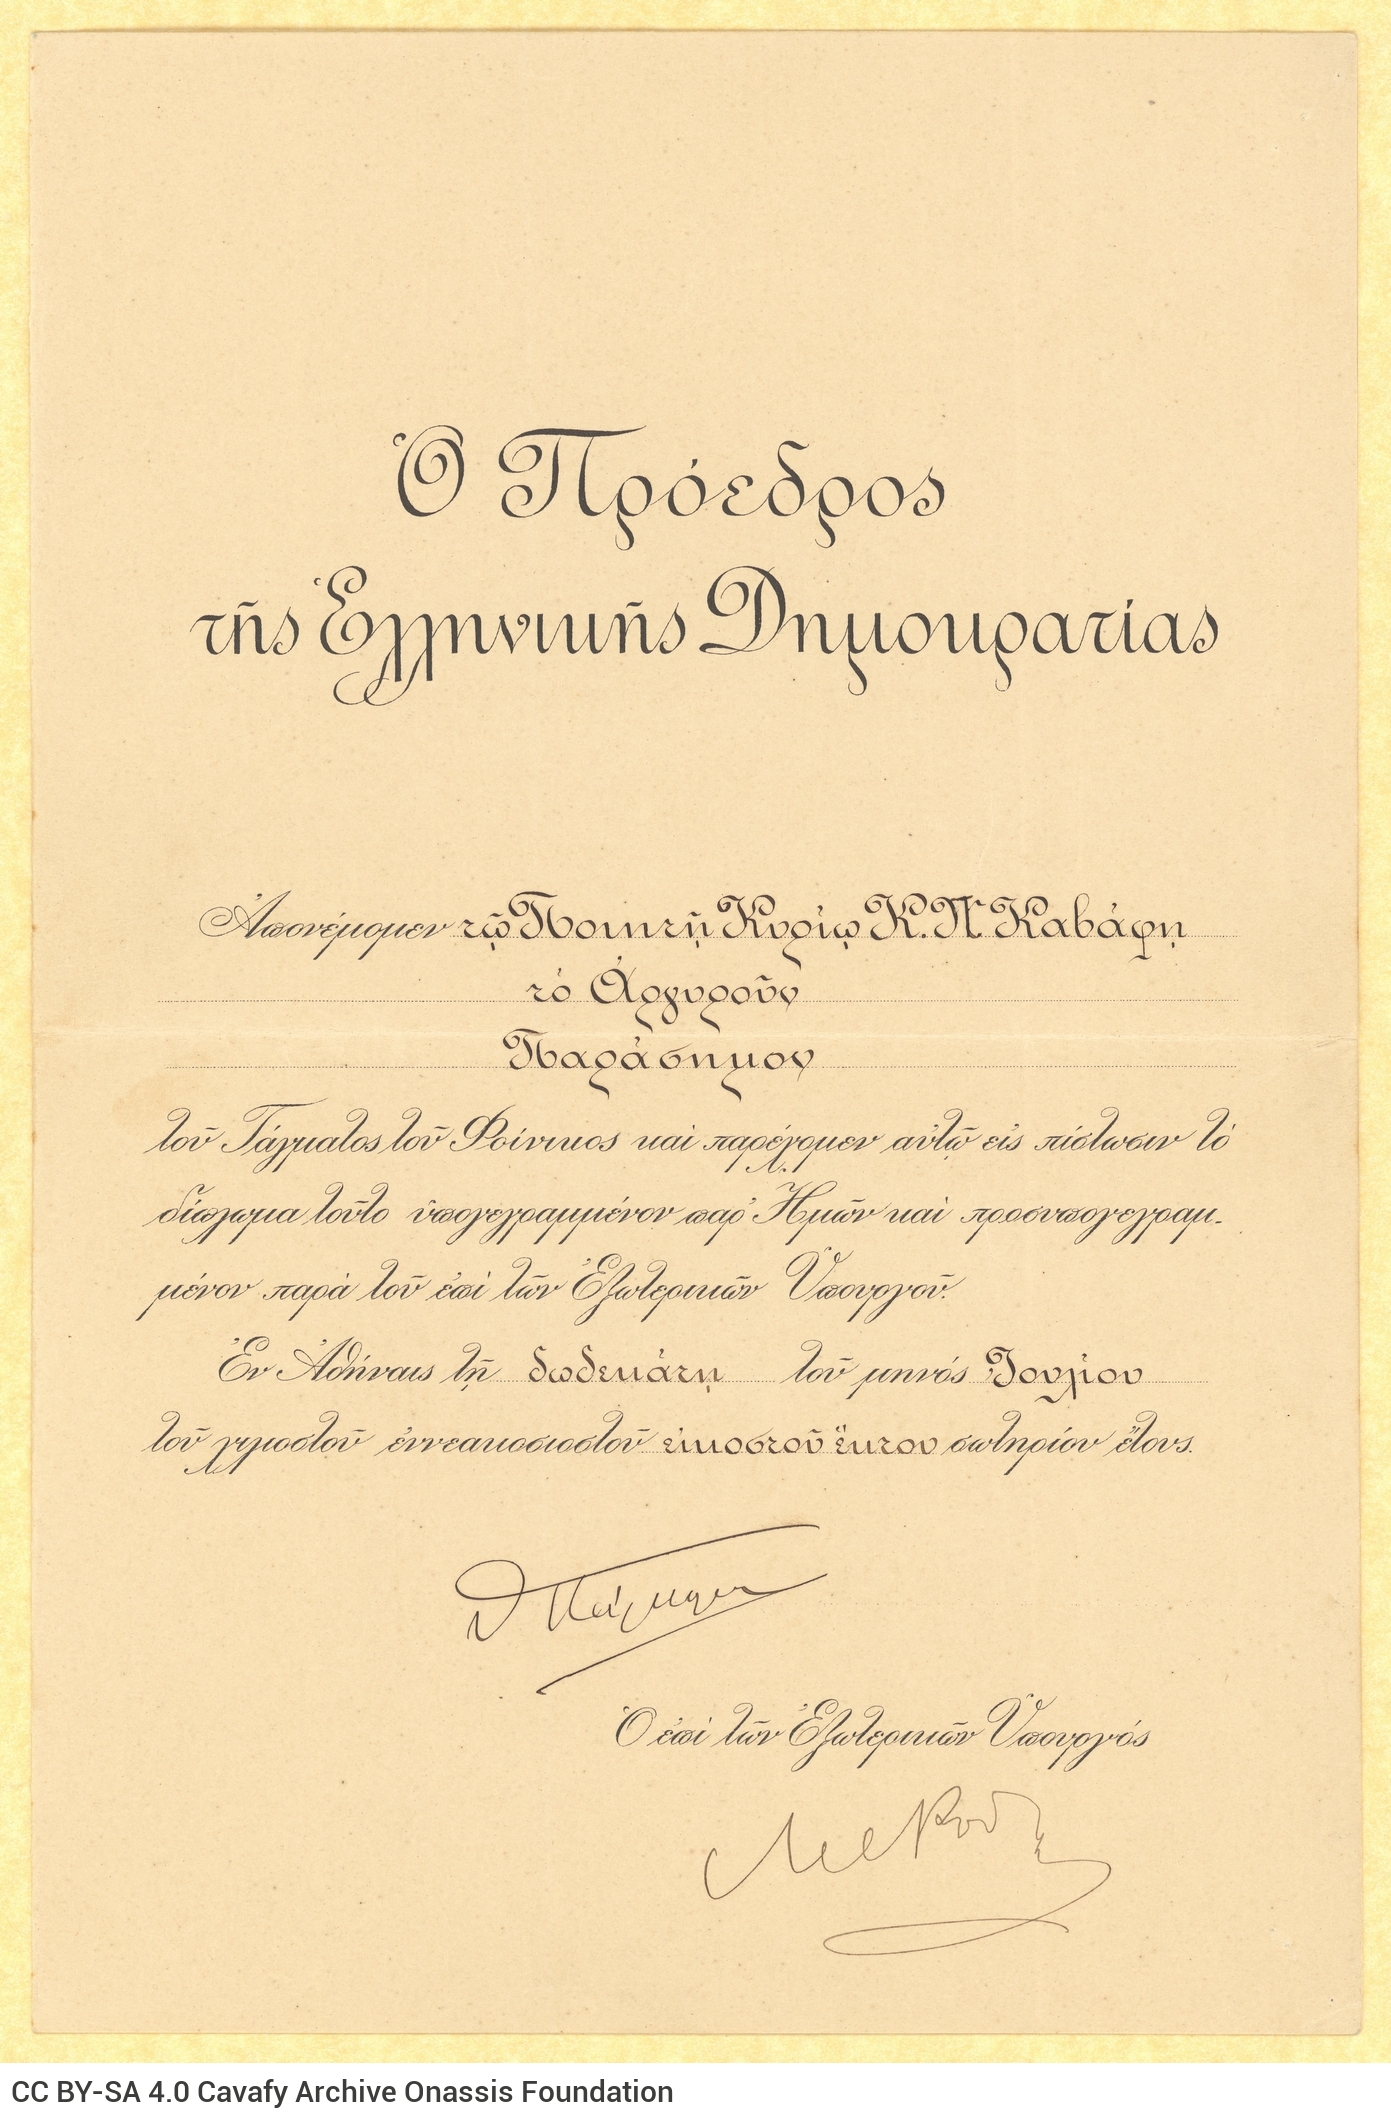 Ὁ Πρόεδρος
τῆς Ἑλληνικῆς Δημοκρατίας
Ἀπονέμομεν τῷ Ποιητῇ Κυρίῳ Κ. Π. Καβάφῃ
τὸ Ἀργυροῦν
Παράσημον
τοῦ Τάγματος τοῦ Φοίνικος καὶ παρέχομεν αὐτῷ εἰς πίστωσιν τὸ
δίπλωμα τοῦτο ὑπογεγραμμένον παρ' Ἡμῶν καὶ προσυπογεγραμ-
μένον παρὰ τοῦ ἐπὶ τῶν Ἐξωτερικῶν Ὑπουργοῦ.
Ἐν Ἀθήναις τῇ δωδεκάτῃ τοῦ μηνὸς Ἰουλίου
τοῦ χιλιοστοῦ ἐννεακοσιοστοῦ εἰκοστοῦ ἕκτου σωτηρίου ἔτους.
Θ Πάγκαλος
Ὁ ἐπὶ τῶν Ἐξωτερικῶν Ὑπουργός
CC BY-SA 4.0 Cavafy Archive Onassis Foundation